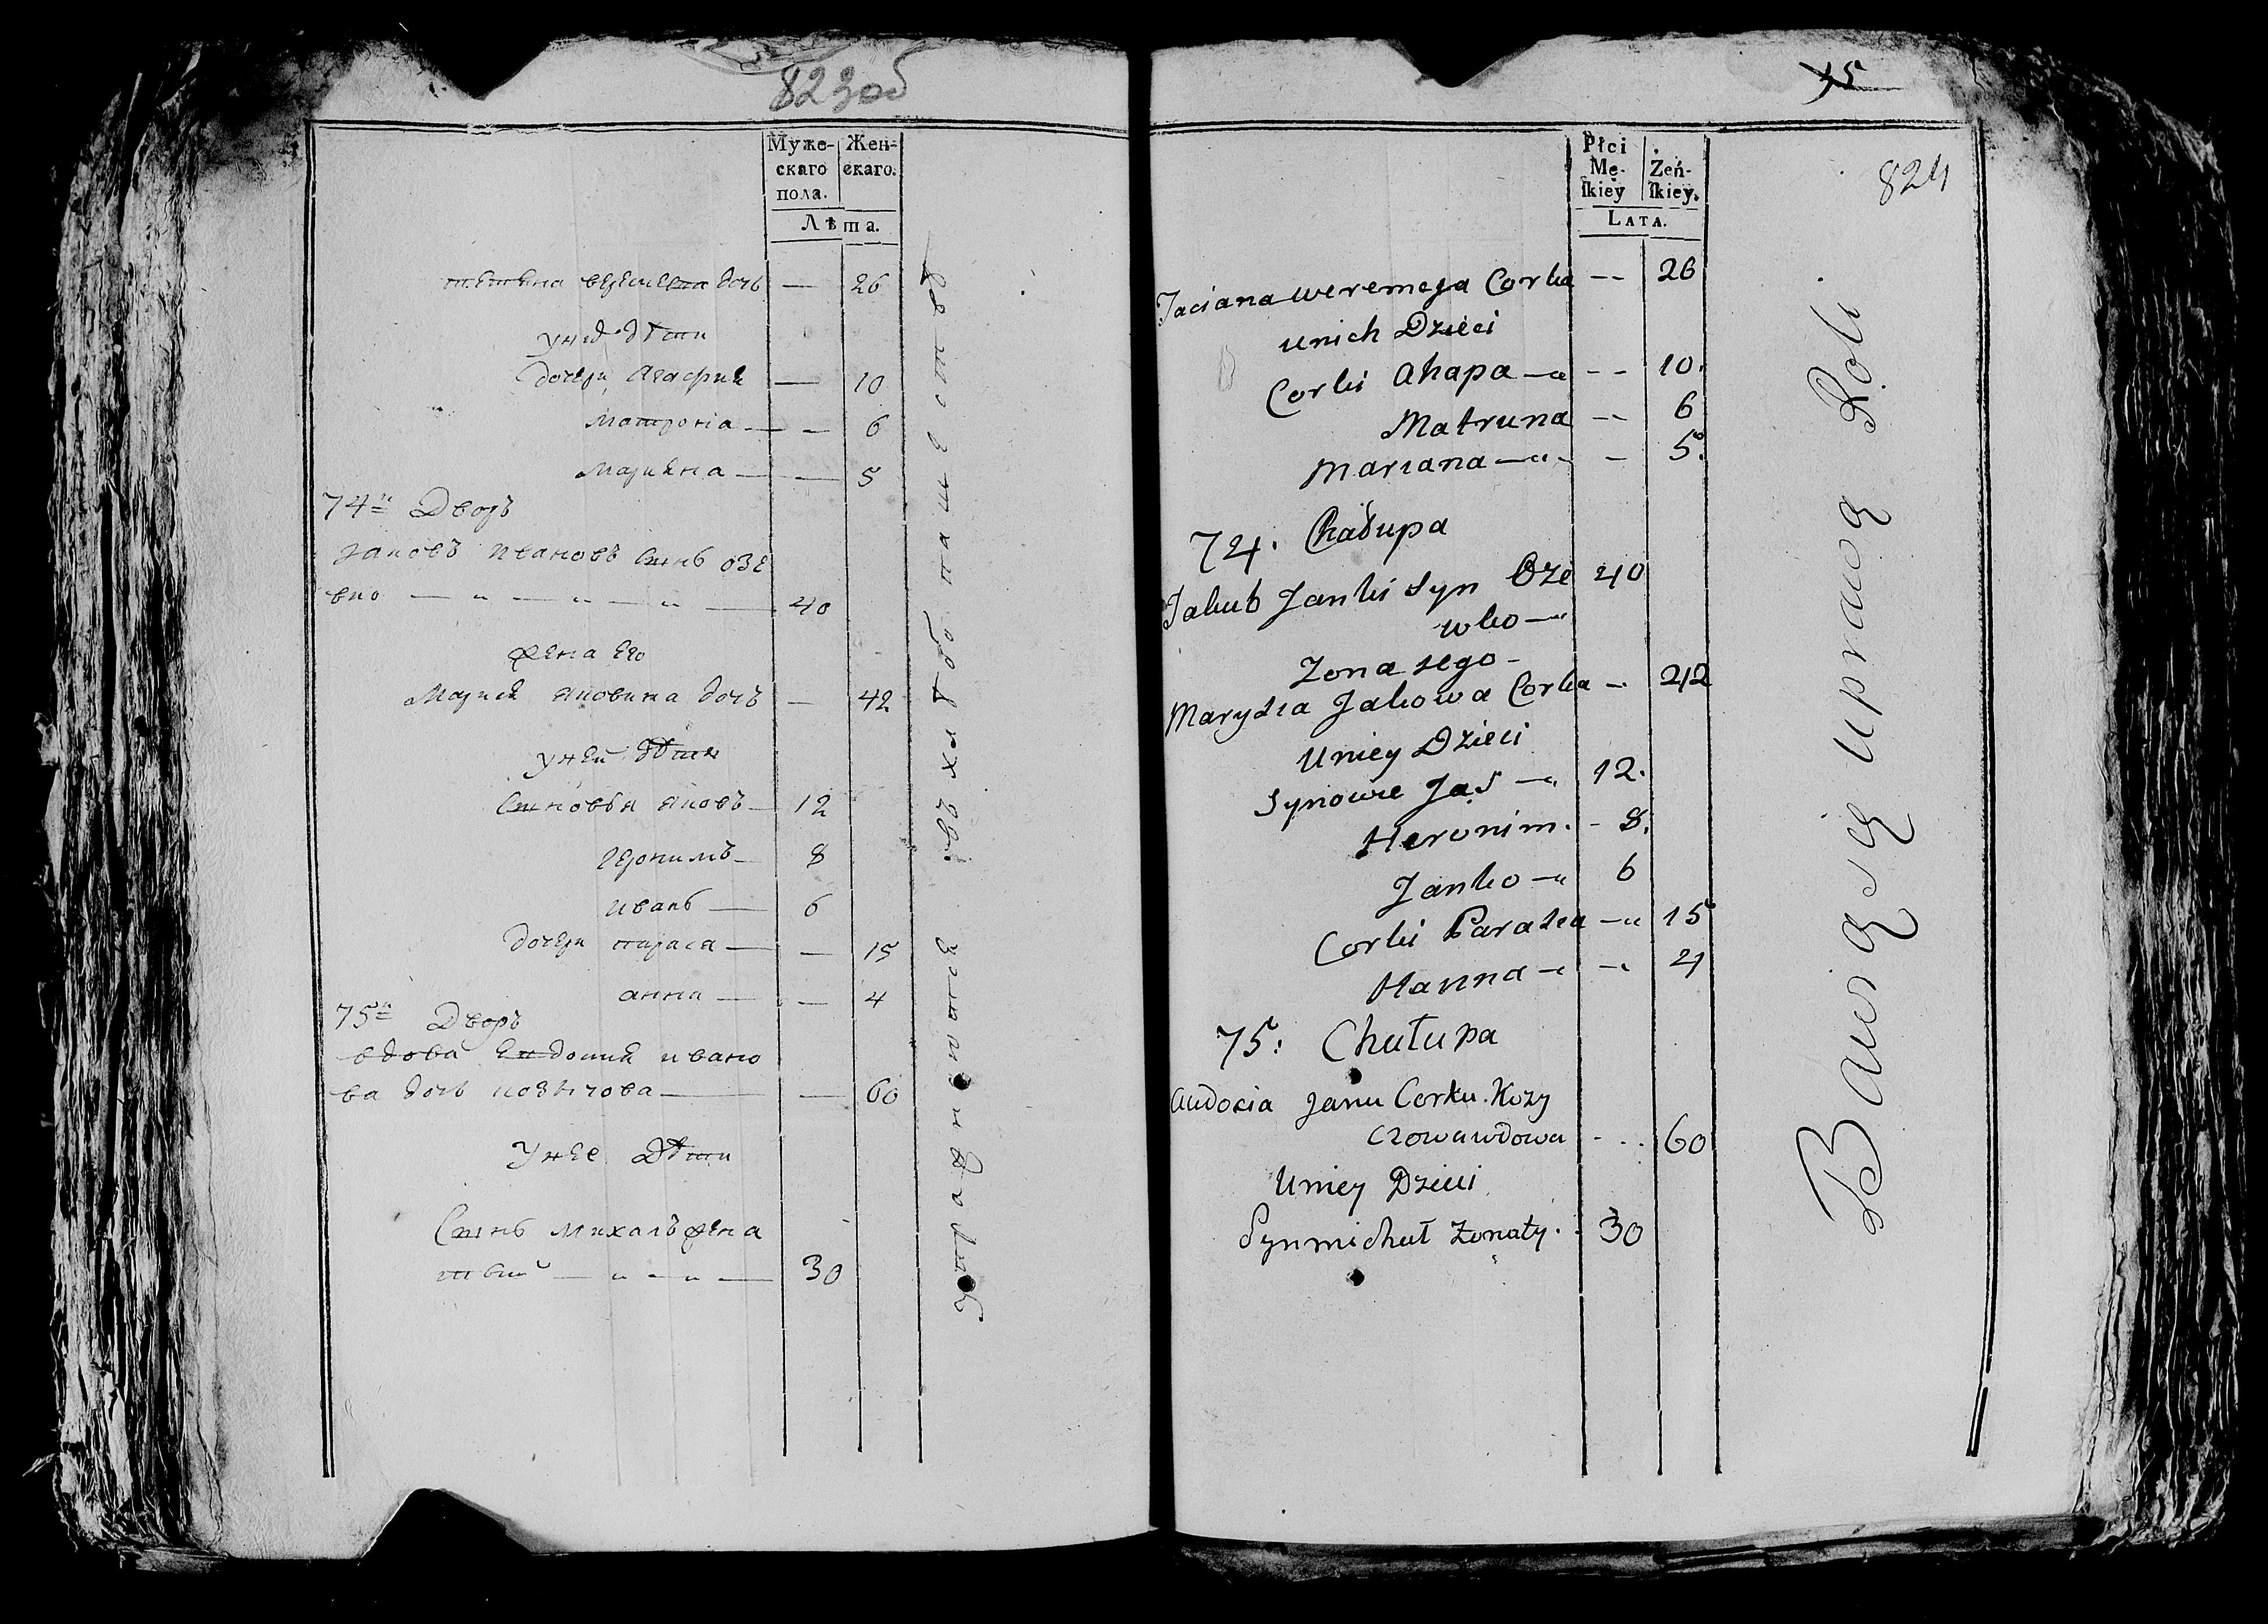 823об
Муже-
скаго
пола.
Жен-
скаго.
Лѣта.
татяна веремеева дочь — 26
у нихъ дѣти
дочери Агафия — 10
Матрона — — 6
Марияна — — 5
74й Дворъ
Яковъ Ивановъ сынъ озе
вко — „ — „ — „ — 40
жена его
Мария яковива дочь — 42
у ней дѣти
Сыновья яковъ — 12
Героnимъ — 8
иванъ — 6
дочери параса — — 15
анна — — 4
75й Дворъ
вдова Евдокия ивано
ва дочь козичова — — 60
У нее Дѣти
Сынъ михалъ жена
тый — „ — „ — 30
упражняются въ хлѣбопашествѣ
35
824
Płci
Mę-
ſkiey
Żeń-
ſkiey.
LATA.
Taciana weremeja Corka -- 26
unich Dzieci
Corki Ahapa — -- 10.
Matruna -- 6
Mariana — - 5.
74. Chałupa
Jakub Janki Syn Oze 40
wko —
Zona jego -
Marysia Jakowa Corka — 42
Uniey Dzieci
Synowie Jaś — 12.
Heronim. - 8.
Janko — 6
Corki Parasia — 15
Hanna — — 4
75: Chałupa
Audocia Jana Corka Kozy
czowa wdowa - .. 60
Uniey Dzieci
Syn michał Zonaty. . 30
Bawią się uprawą Roli